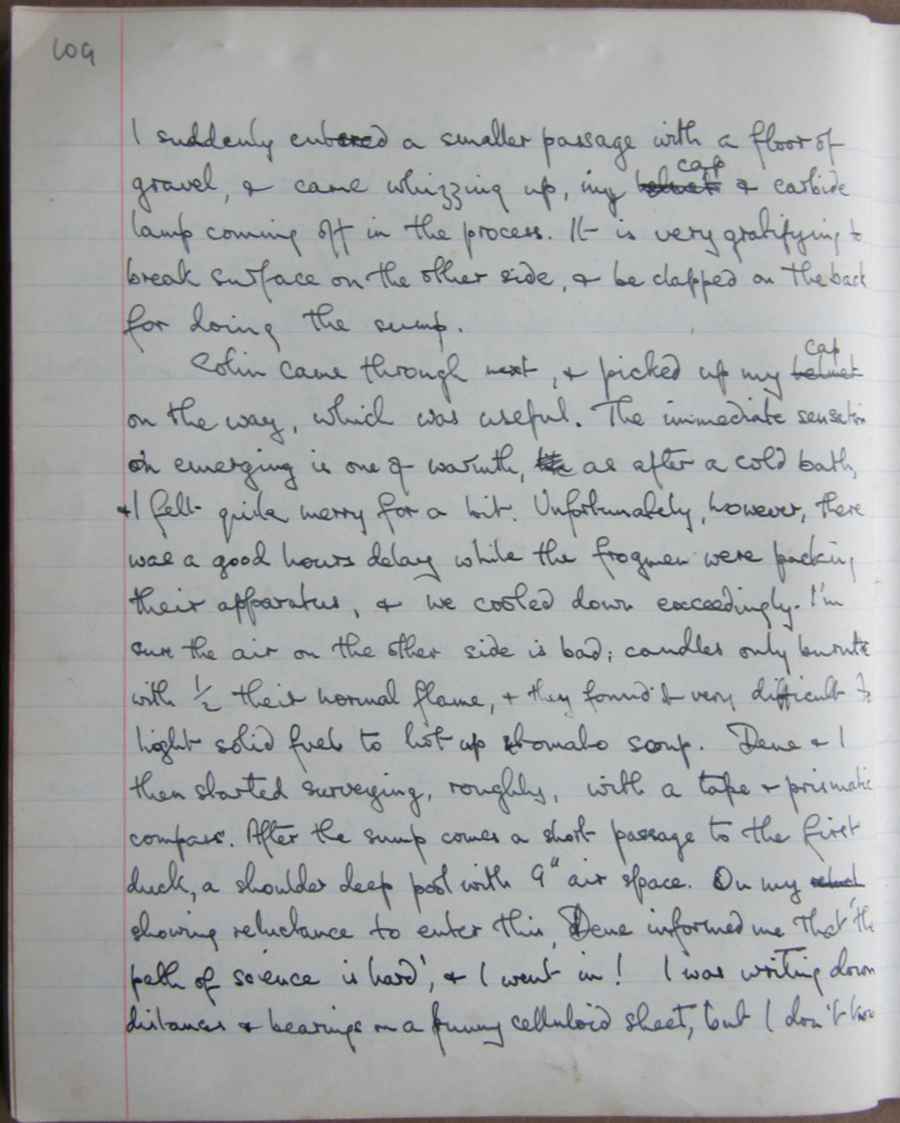 109
I suddenly entered a smaller passage with a floor of
gravel, & came whizzing up, my helmet cap & carbide
lamp coming off in the process. It is very gratifying to
break surface on the other side, & be clapped on the back
for doing the sump.
Colin came through next, & picked up my helmet cap
on the way, which was useful. The immediate sensation
on emerging is one of warmth, as after a cold bath,
& I felt quite merry for a bit. Unfortunately, however, there
was a good hours delay while the frogmen were packing
their apparatus, & we cooled down exceedingly. I'm
sure the air on the other side is bad; candles only burnt
with 1/2 their normal flame, & they found it very difficult to
light solid fuel to hot up tomato soup. Dene & I
then started surveying, roughly, with a tape & prismatic
compass. After the sump comes a short passage to the first
duck, a shoulder deep pool with 9" air space. On my
showing reluctance to enter this, Dene informed me that 'the
path of science is hard', & I went in! I was writing down
distances & bearings on a funny celluloid sheet, but I don't know